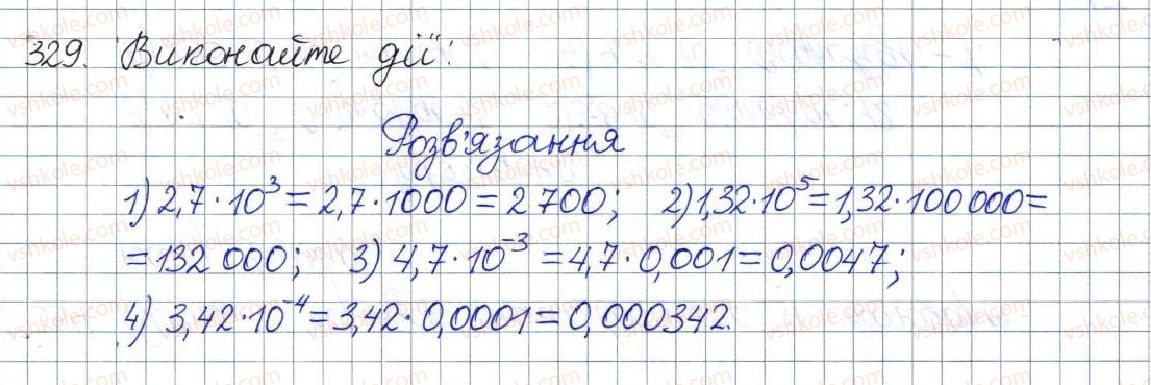 329. Виконайте дії:
Розв'язання
1) 2,7 · 10³ = 2,7 · 1000 = 2 700; 2) 1,32 · 10⁵ = 1,32 · 100 000 =
= 132 000; 3) 4,7 · 10⁻³ = 4,7 · 0,001 = 0,0047;
4) 3,42 · 10⁻⁴ = 3,42 · 0,0001 = 0,000342.